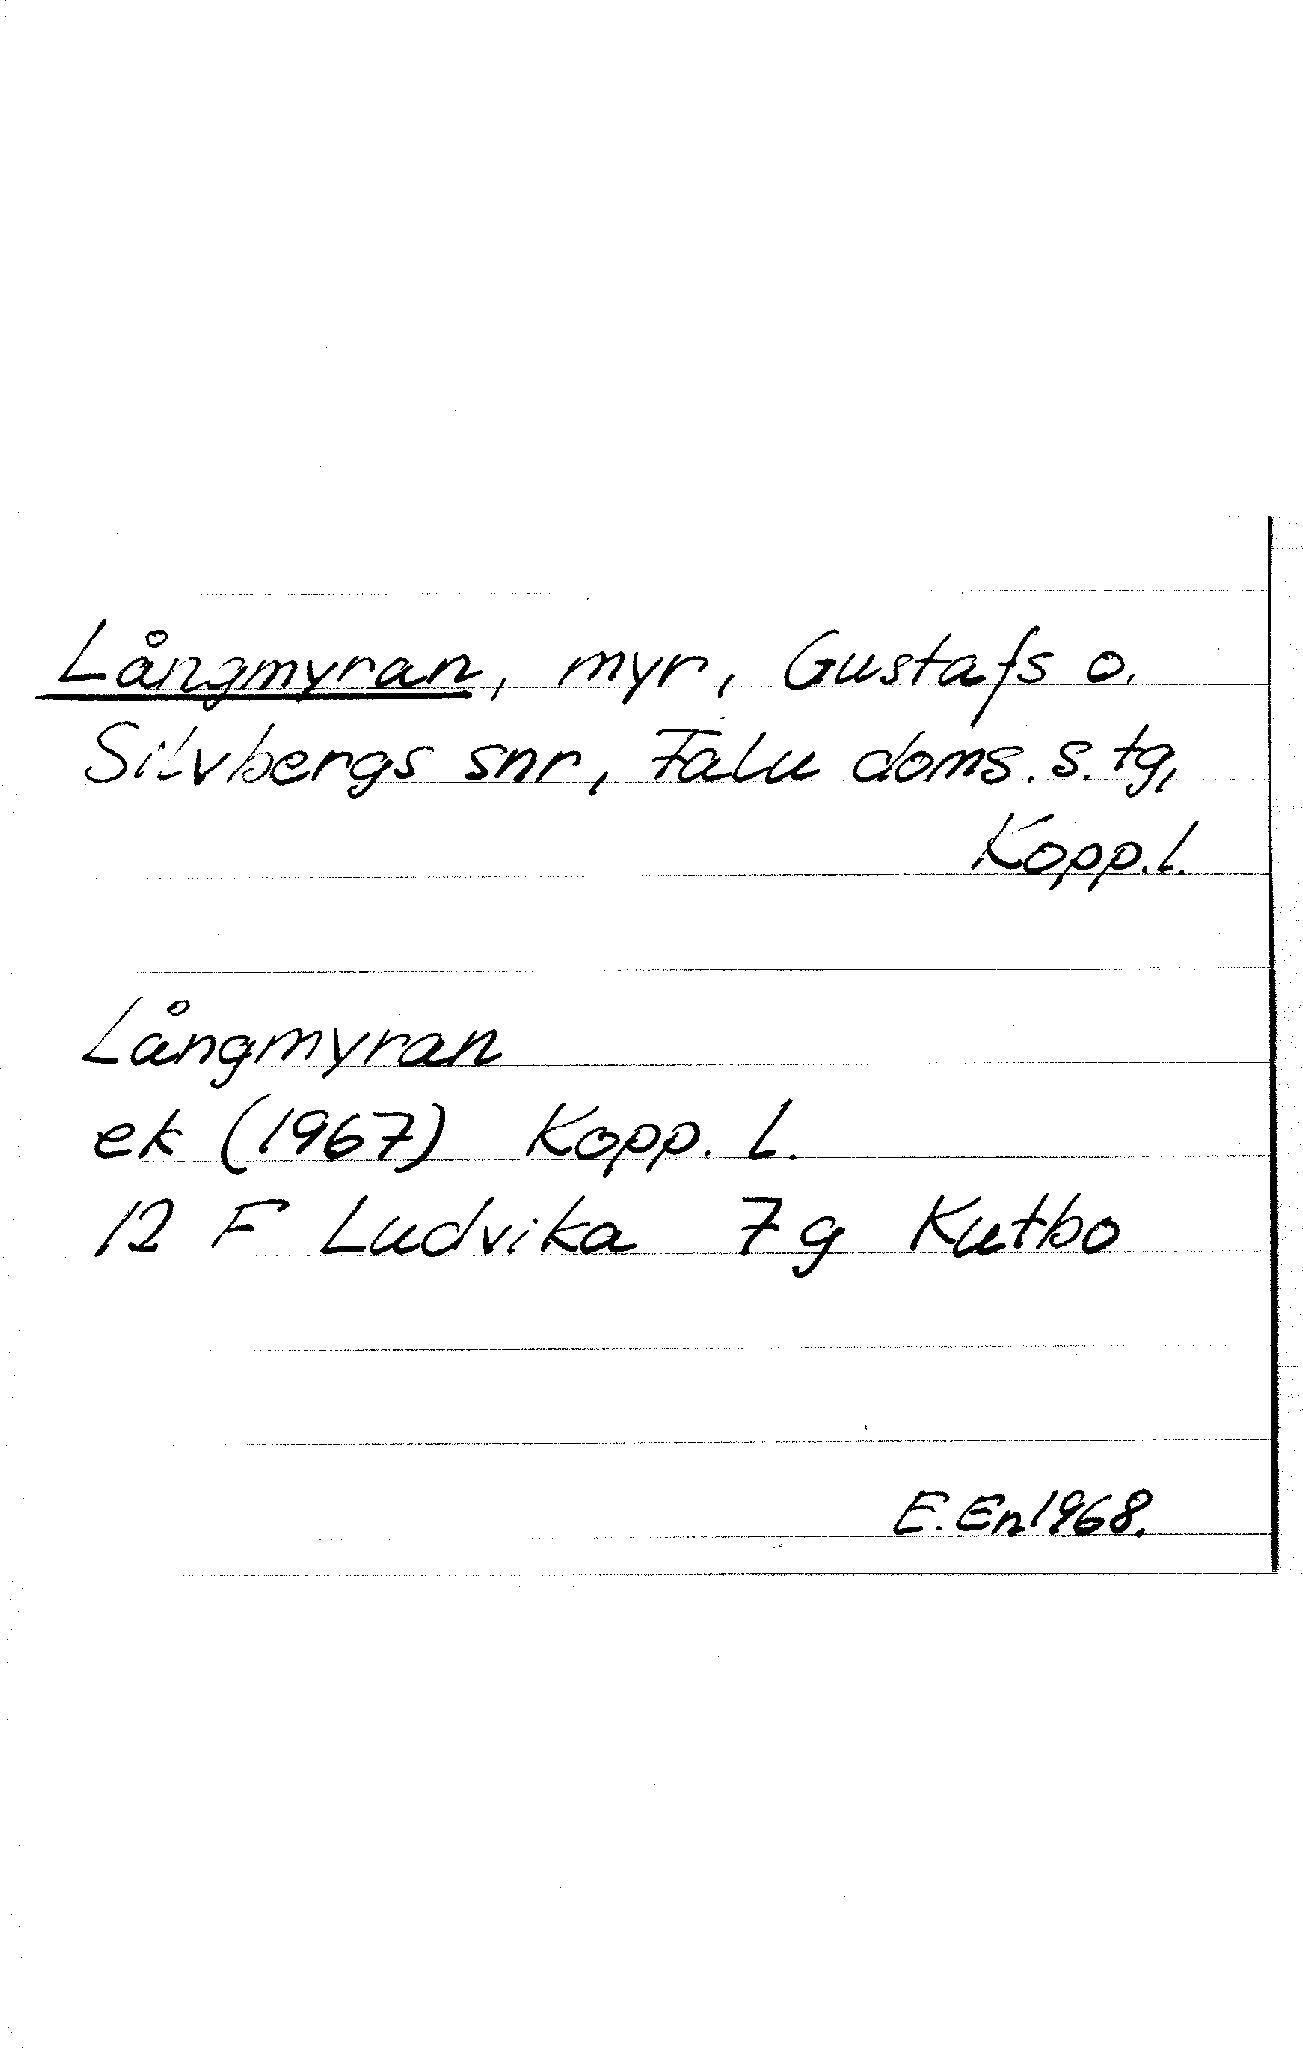 Långmyran, myr, Gustafs o.
Silvbergs snr, Falu doms. s. tg,
Kopp. l.
Långmyran
ek (1967) Kopp. L.
12 F Ludvika 7 g Kutbo
E. En 1968.